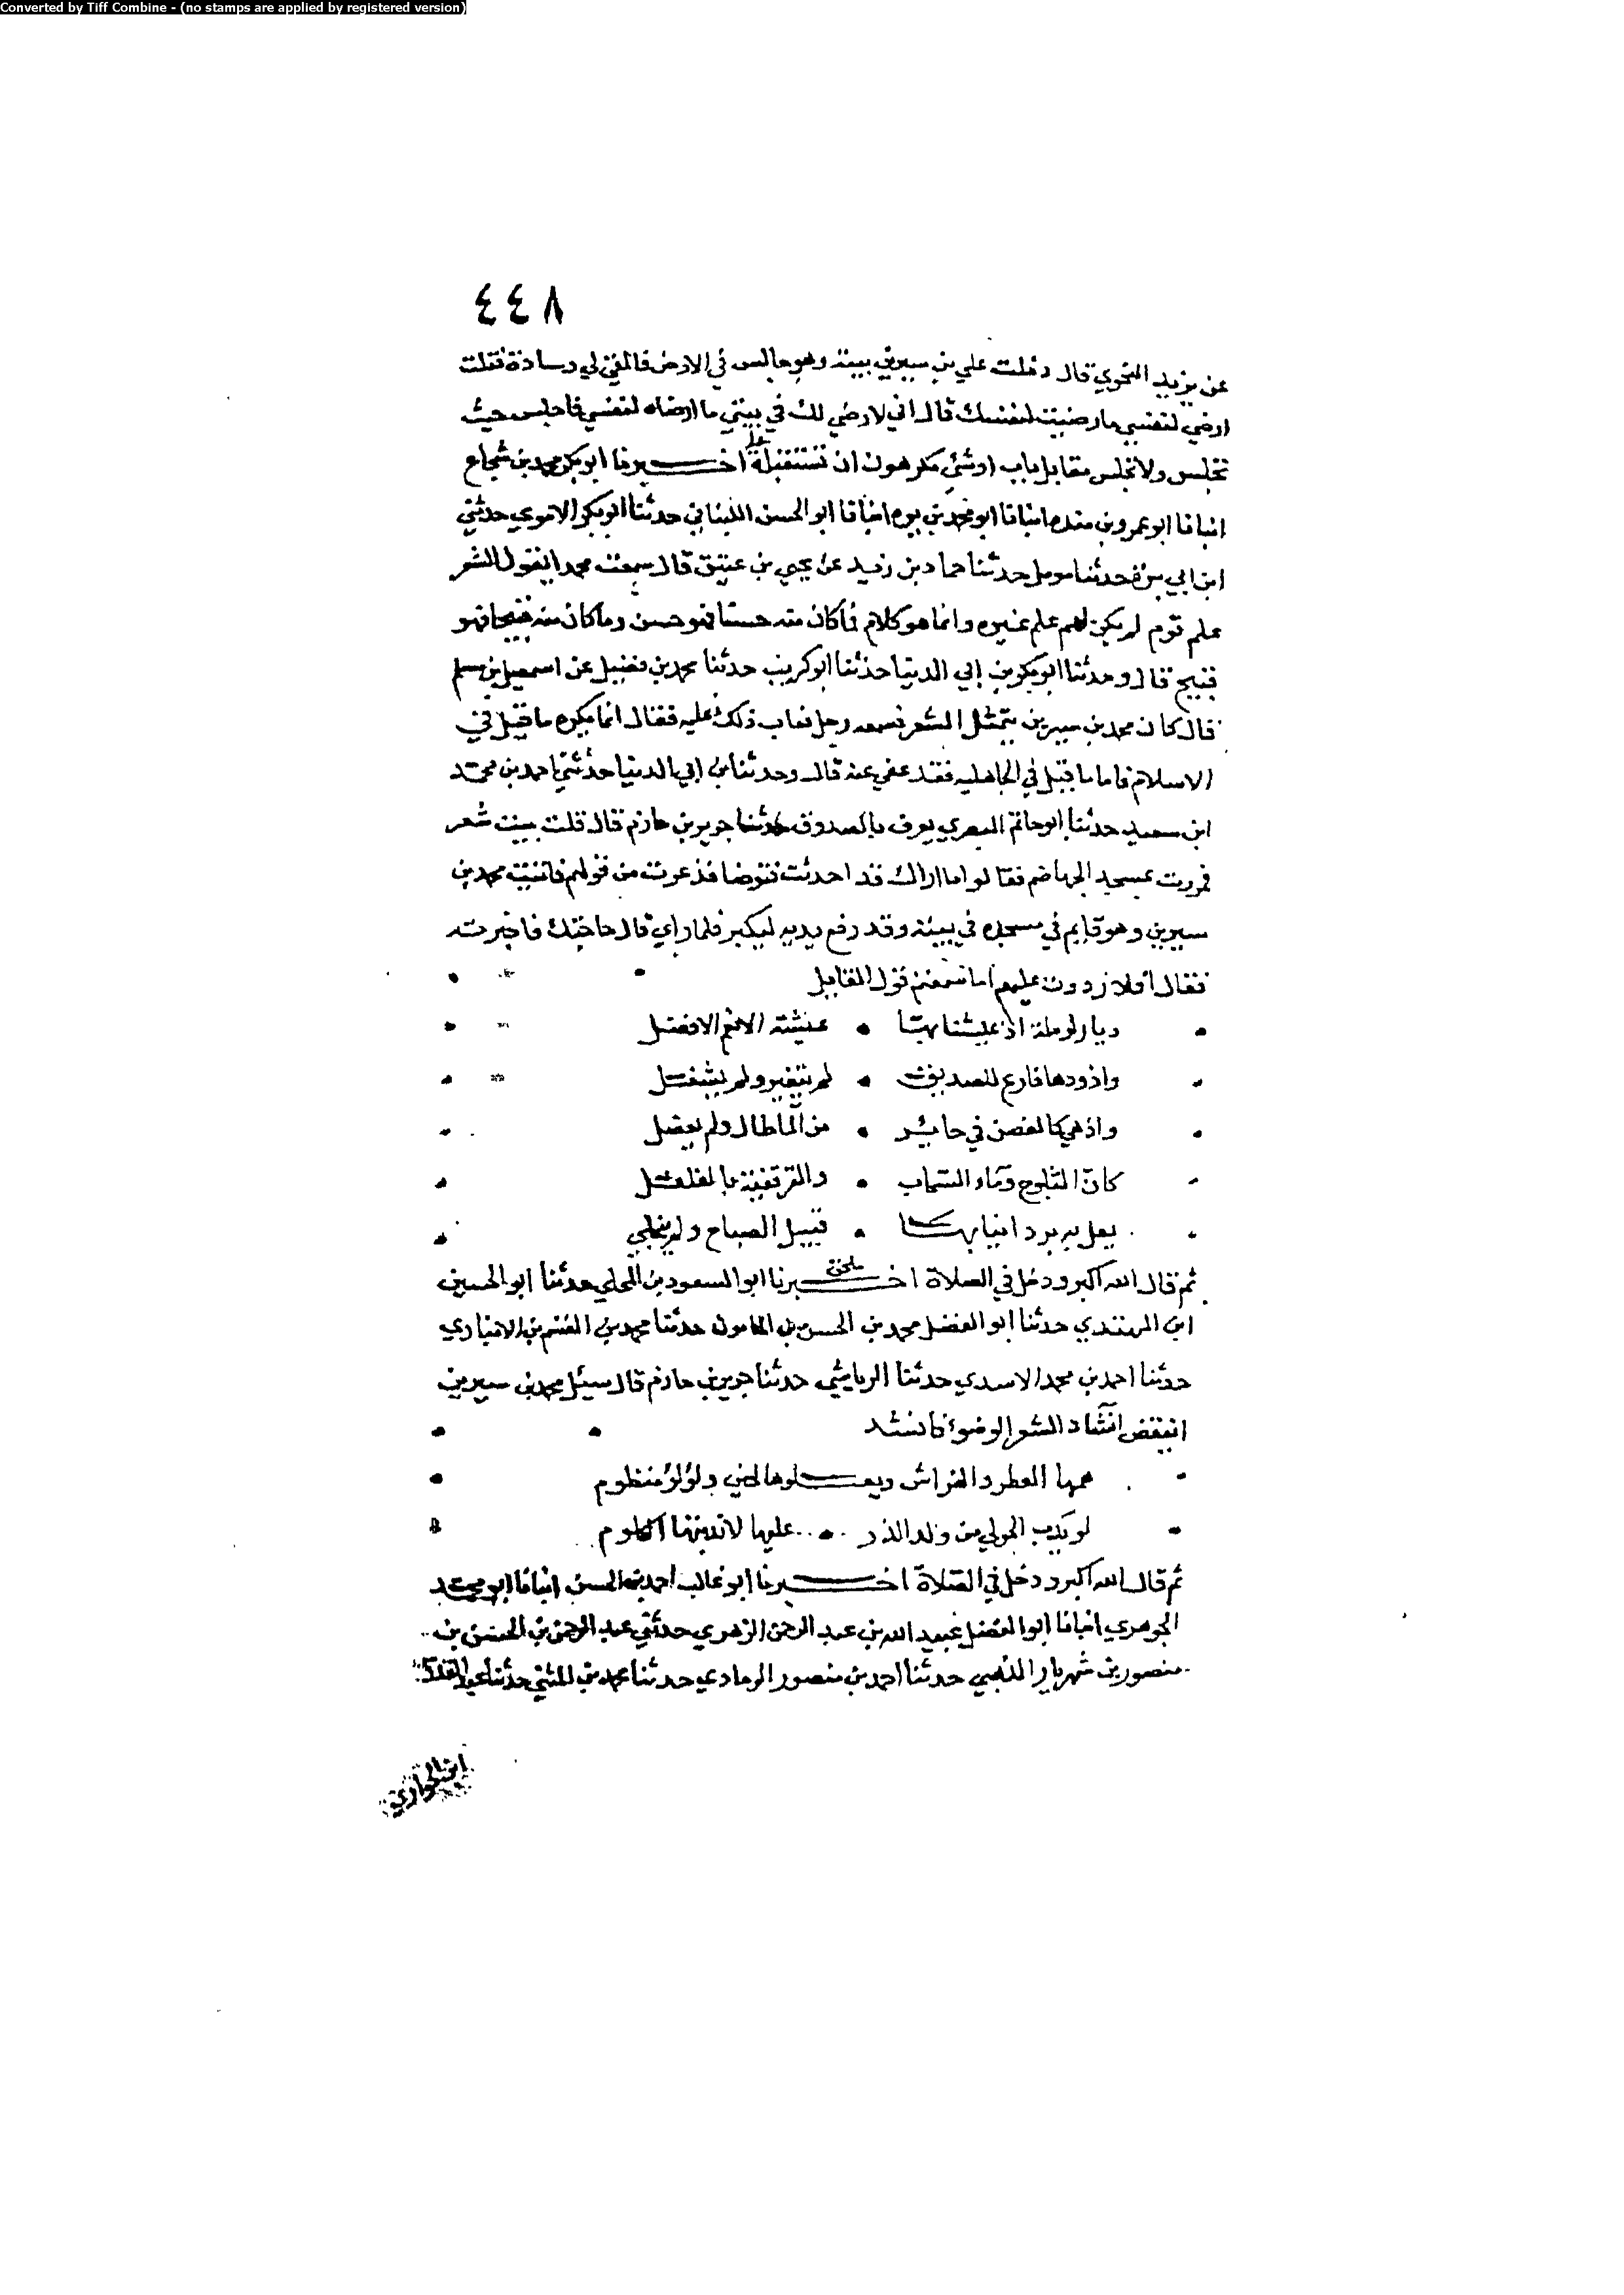 Converted by Tiff Combine - (no stamps are applied by registered version)
٤٤٨
عن يزيد النحوي قال دخلت علي بن سيرين بيته وهو جالس في الارض فالقي لي وسادة فقلت
ارضي لنفسي ما رضيت لنفسك قال اني لا رضي لك في بيتي ما ارضاه لنفسي فاجلس حيث
تجلس ولا تجلس مقابل باب او شئ مكرهون ان تستقبله اخبرنا ابو بكر محمد بن شجاع
انبانا ابو عمرو بن منده انبانا ابو محمد بن يوه انبانا ابو الحسن اللبناني حدثنا ابو بكر الاموي حدثني
ابن ابي حدثنا مومل حدثنا حماد بن زيد عن يحيي بن عتيق قال سمعت محمدا يقول الشعر
علم قوم لم يكن لهم علم غيره وانما هو كلام فما كان منه حسنا فهو حسن وما كان منه قبيحا فهو
قبيح قال وحدثنا ابو بكر بن ابي الدنيا حدثنا ابو كريب حدثنا محمد بن فضيل عن اسمعيل بن مسلم
قال كان محمد بن سيرين يتمثل الشعر فسمعه رجل فعاب ذلك عليه فقال انما يكره ما قيل في
الاسلام فاما ما قيل في الجاهليه فقد عفي عنه قال وحدثنا بن ابي الدنيا حدثني احمد بن محمد
ابن سعيد حدثنا ابو حاتم البصري يعرف بالصدوق حدثنا جرير بن حازم قال قلت بيت شعر
فمررت بمسجد الجهاضم فقالوا ما اراك قد احدثت فتوضا فذعرت من قولهم فاتيت محمد بن
سيرين وهو قايم في مسجده في بيته وقد رفع يديه ليكبر فلما راي قال حاجتك فاخبرته
فقال افلا رددت عليهم اما سمعتم قول القايل
ديار لرملة اذ عيشنا بها • عيشة الانعم الافضل
واذ ودها فارغ للصديق • لم يتغير ولم يشغل
واذ هي كالغصن في حاير • من الما طال ولم يعضل
كان الثلوج وماء السحاب • والقرقفية بالفلفل
يعل به برد انيابها • قبيل الصباح ولم ينجلي
ثم قال الله اكبر ودخل في الصلاة اخبرنا ابو السعود بن المجلي حدثنا ابو الحسين
ابن المهتدي حدثنا ابو الفضل محمد بن الحسن بن المامون حدثنا محمد بن القسم بن الانباري
حدثنا احمد بن محمد الاسدي حدثنا الرياشي حدثنا جرير بن حازم قال سيل محمد بن سيرين
اينقض انشاد الشعر الوضوء فانشد
همها العطر والفراش ويعلوها لجين ولؤلؤ منظوم
لو يدب الحولي من ولد الذر • عليها لاندبتها الكلوم
ثم قال الله اكبر ودخل في الصلاة اخبرنا ابو غالب احمد بن الحسن انبانا ابو محمد
الجوهري انبانا ابو الفضل عبيد الله بن عبد الرحمن الزهري حدثني عبد الرحمن بن الحسن بن
منصور بن شهريار حدثنا احمد بن منصور الرمادي حدثنا محمد بن المثني حدثنا